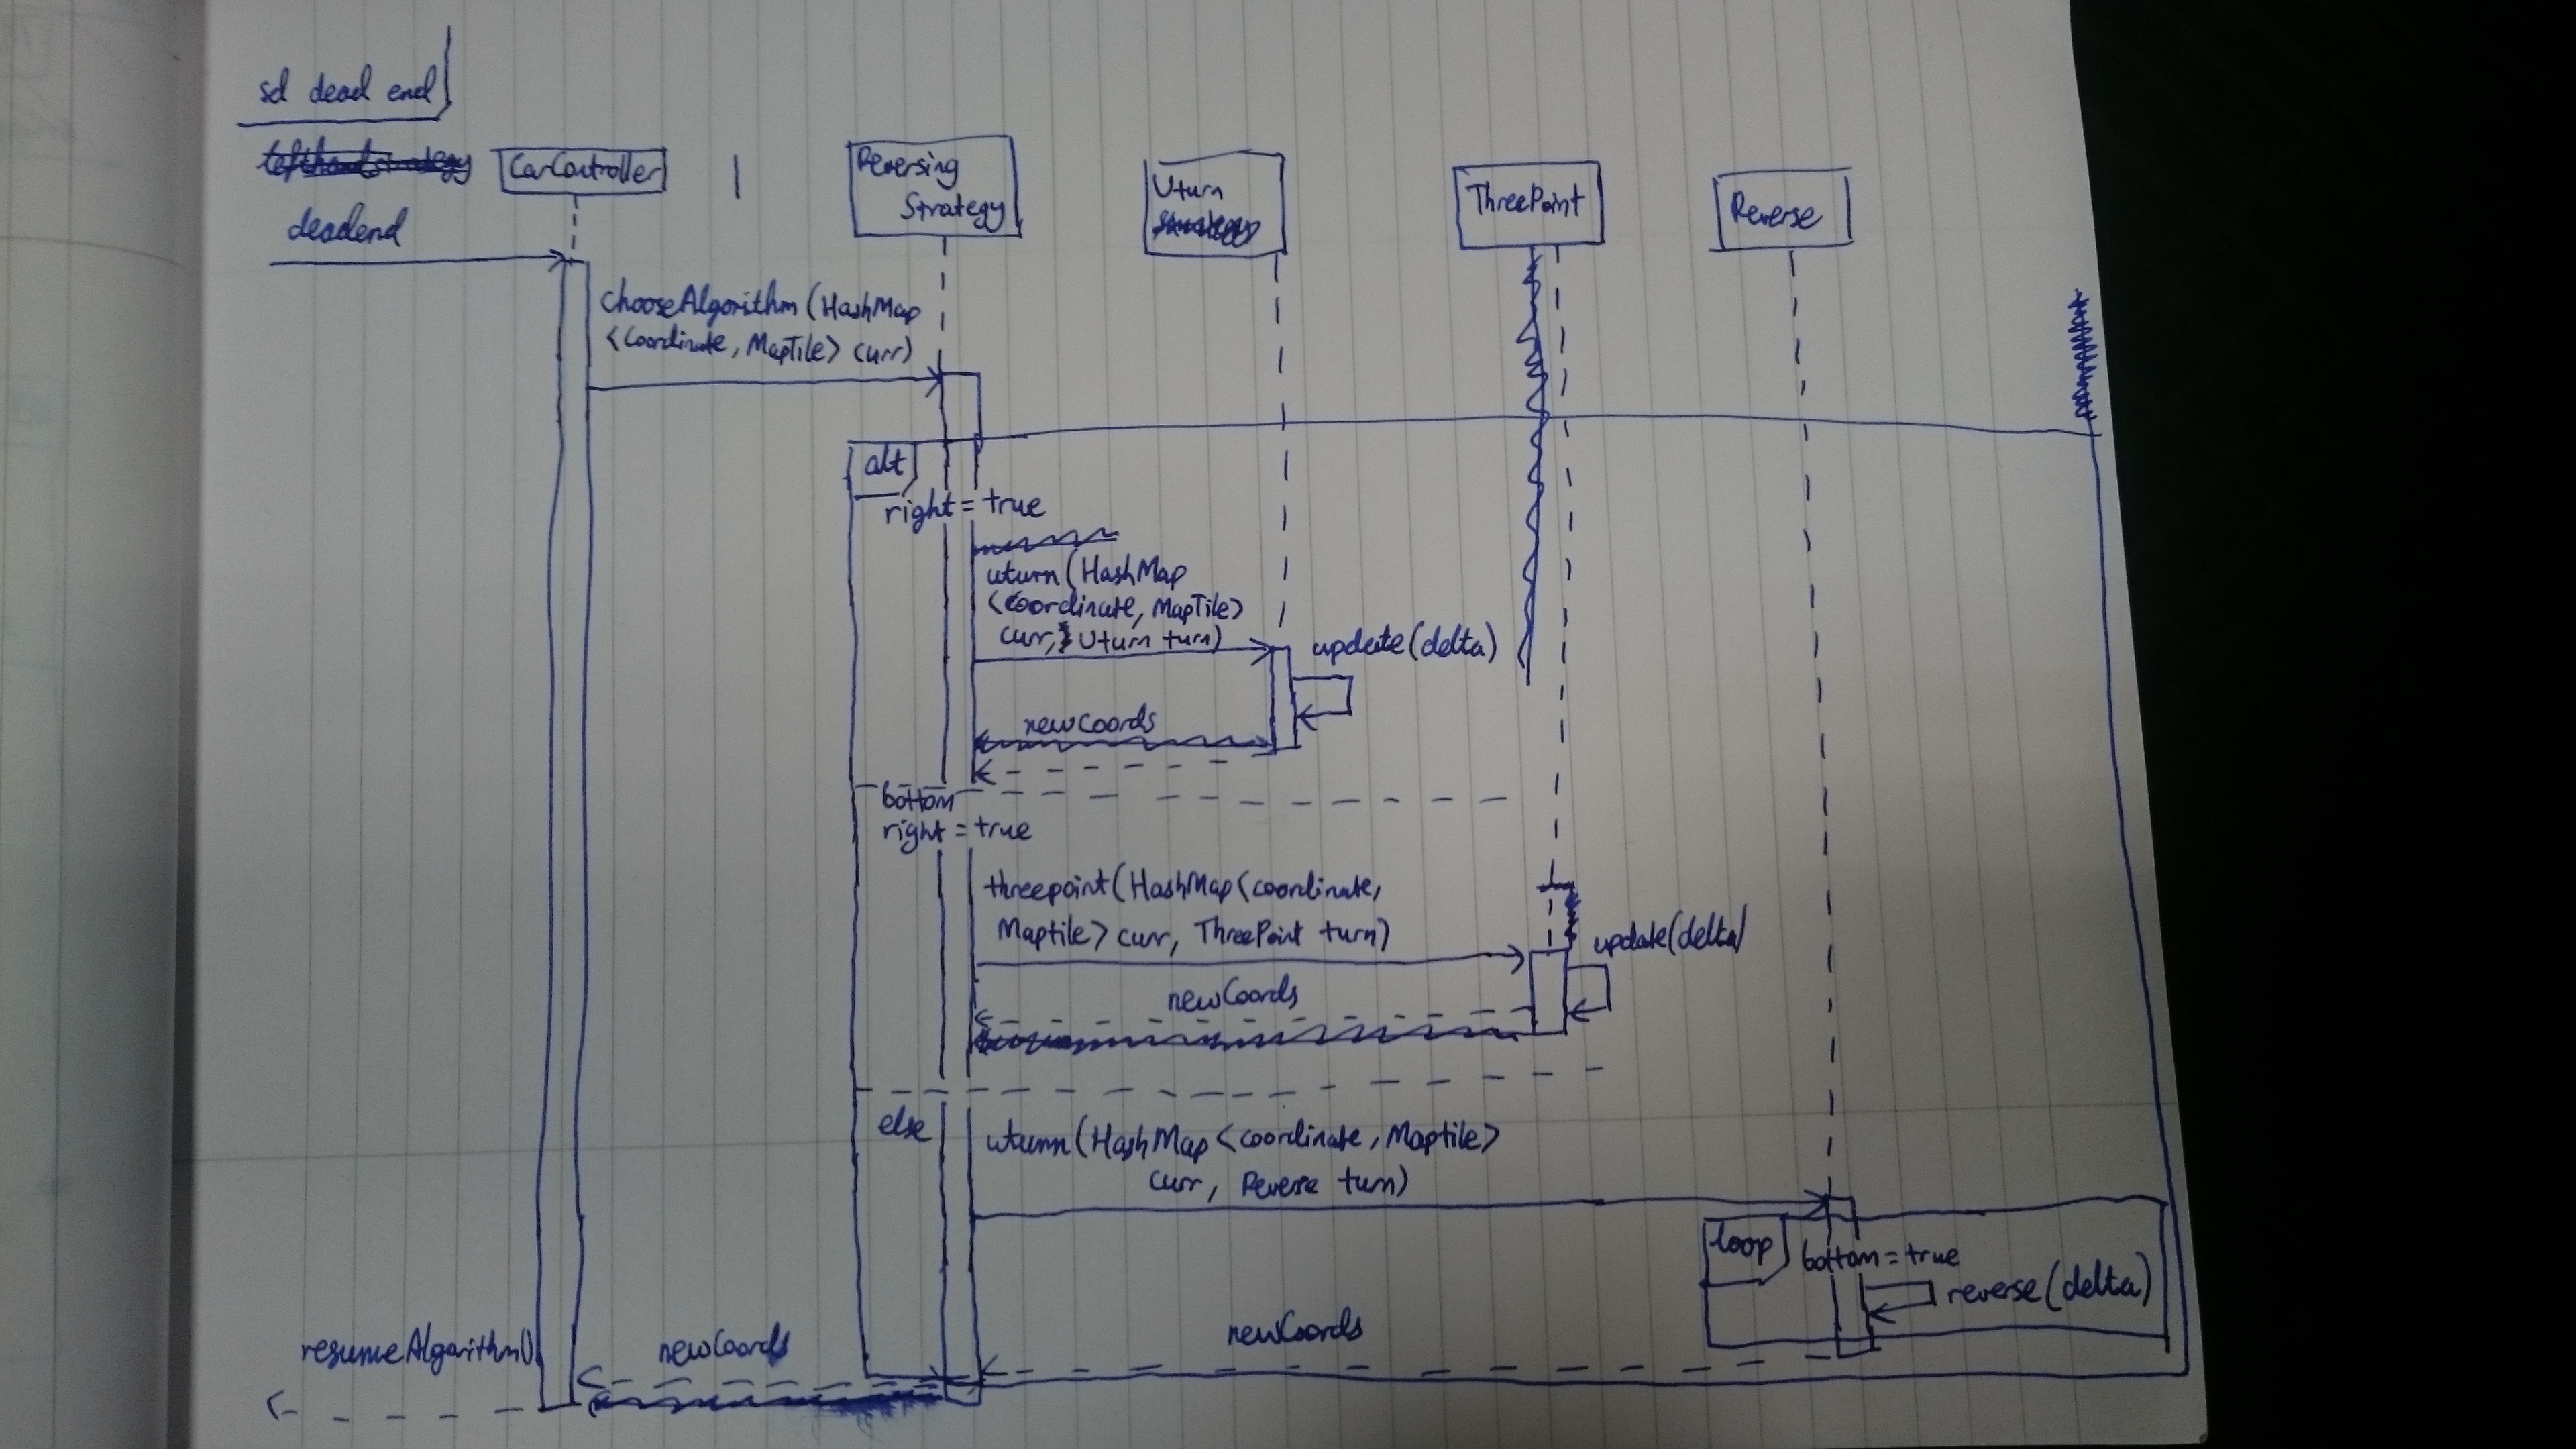 sd dead end
CarController
Reversing
Strategy
Uturn
ThreePoint
Reverse
deadend
chooseAlgorithm(HashMap
<Coordinate, MapTile> curr)
alt
right = true
uturn(HashMap
<Coordinate, MapTile>
curr, Uturn turn)
update(delta)
newCoords
bottom
right = true
threepoint(HashMap<coordinate,
Maptile> curr, ThreePoint turn)
update(delta)
newCoords
else
uturn(HashMap<coordinate, Maptile>
curr, Reverse turn)
loop
bottom = true
reverse(delta)
newCoords
newCoords
resumeAlgorithm()